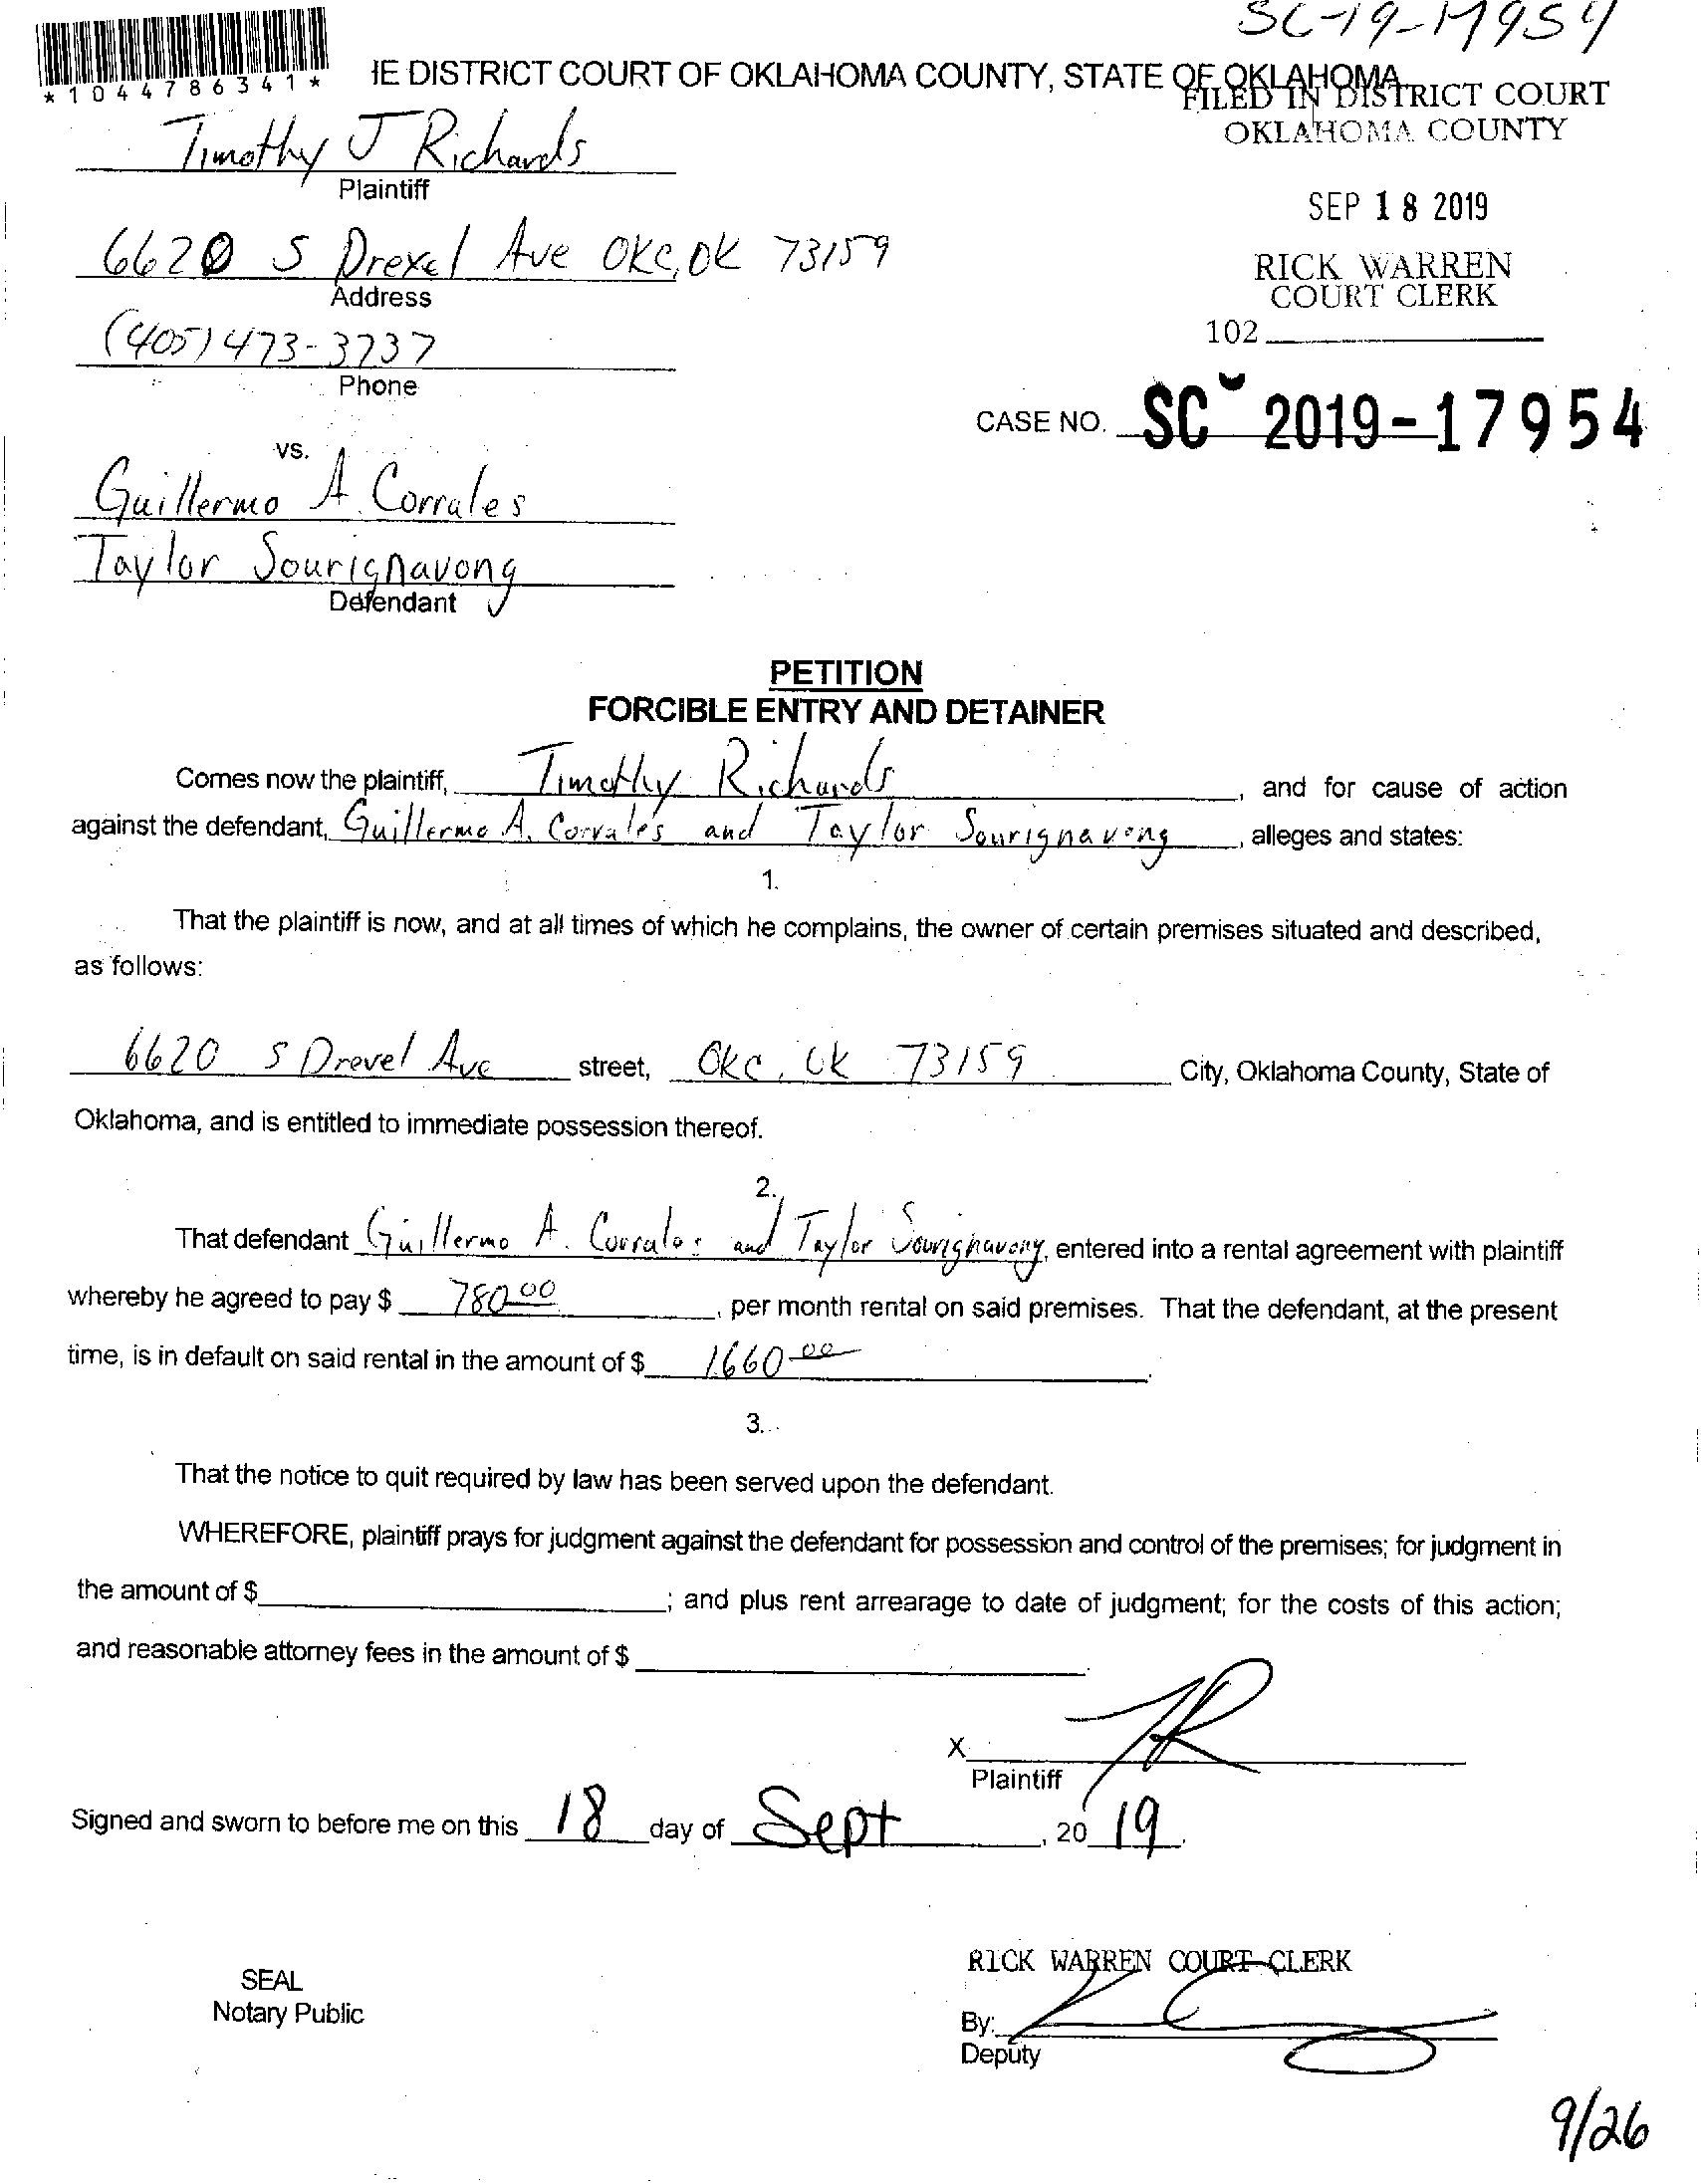 SC-19-17954
*1044786341*
IE DISTRICT COURT OF OKLAHOMA COUNTY, STATE OF OKLAHOMA
FILED IN DISTRICT COURT
OKLAHOMA COUNTY
Timothy J Richards
Plaintiff
SEP 18 2019
6620 S Drexel Ave OKC, OK 73159
Address
RICK WARREN
COURT CLERK
(405) 473-3737
102
Phone
CASE NO. SC 2019-17954
vs.
Guillermo A. Corrales
Taylor Sourignavong
Defendant
PETITION
FORCIBLE ENTRY AND DETAINER
Comes now the plaintiff, Timothy Richards, and for cause of action
against the defendant, Guillermo A. Corrales and Taylor Sourignavong, alleges and states:
1.
That the plaintiff is now, and at all times of which he complains, the owner of certain premises situated and described,
as follows:
6620 S Drexel Ave street, OKC, OK 73159 City, Oklahoma County, State of
Oklahoma, and is entitled to immediate possession thereof.
2.
That defendant Guillermo A. Corrales and Taylor Sourignavong, entered into a rental agreement with plaintiff
whereby he agreed to pay $ 780.00, per month rental on said premises. That the defendant, at the present
time, is in default on said rental in the amount of $ 1660.00.
3.
That the notice to quit required by law has been served upon the defendant.
WHEREFORE, plaintiff prays for judgment against the defendant for possession and control of the premises; for judgment in
the amount of $ ; and plus rent arrearage to date of judgment; for the costs of this action;
and reasonable attorney fees in the amount of $ .
X TR
Plaintiff
Signed and sworn to before me on this 18 day of Sept, 20 19.
RICK WARREN COURT CLERK
SEAL
Notary Public
By:
Deputy
9/26